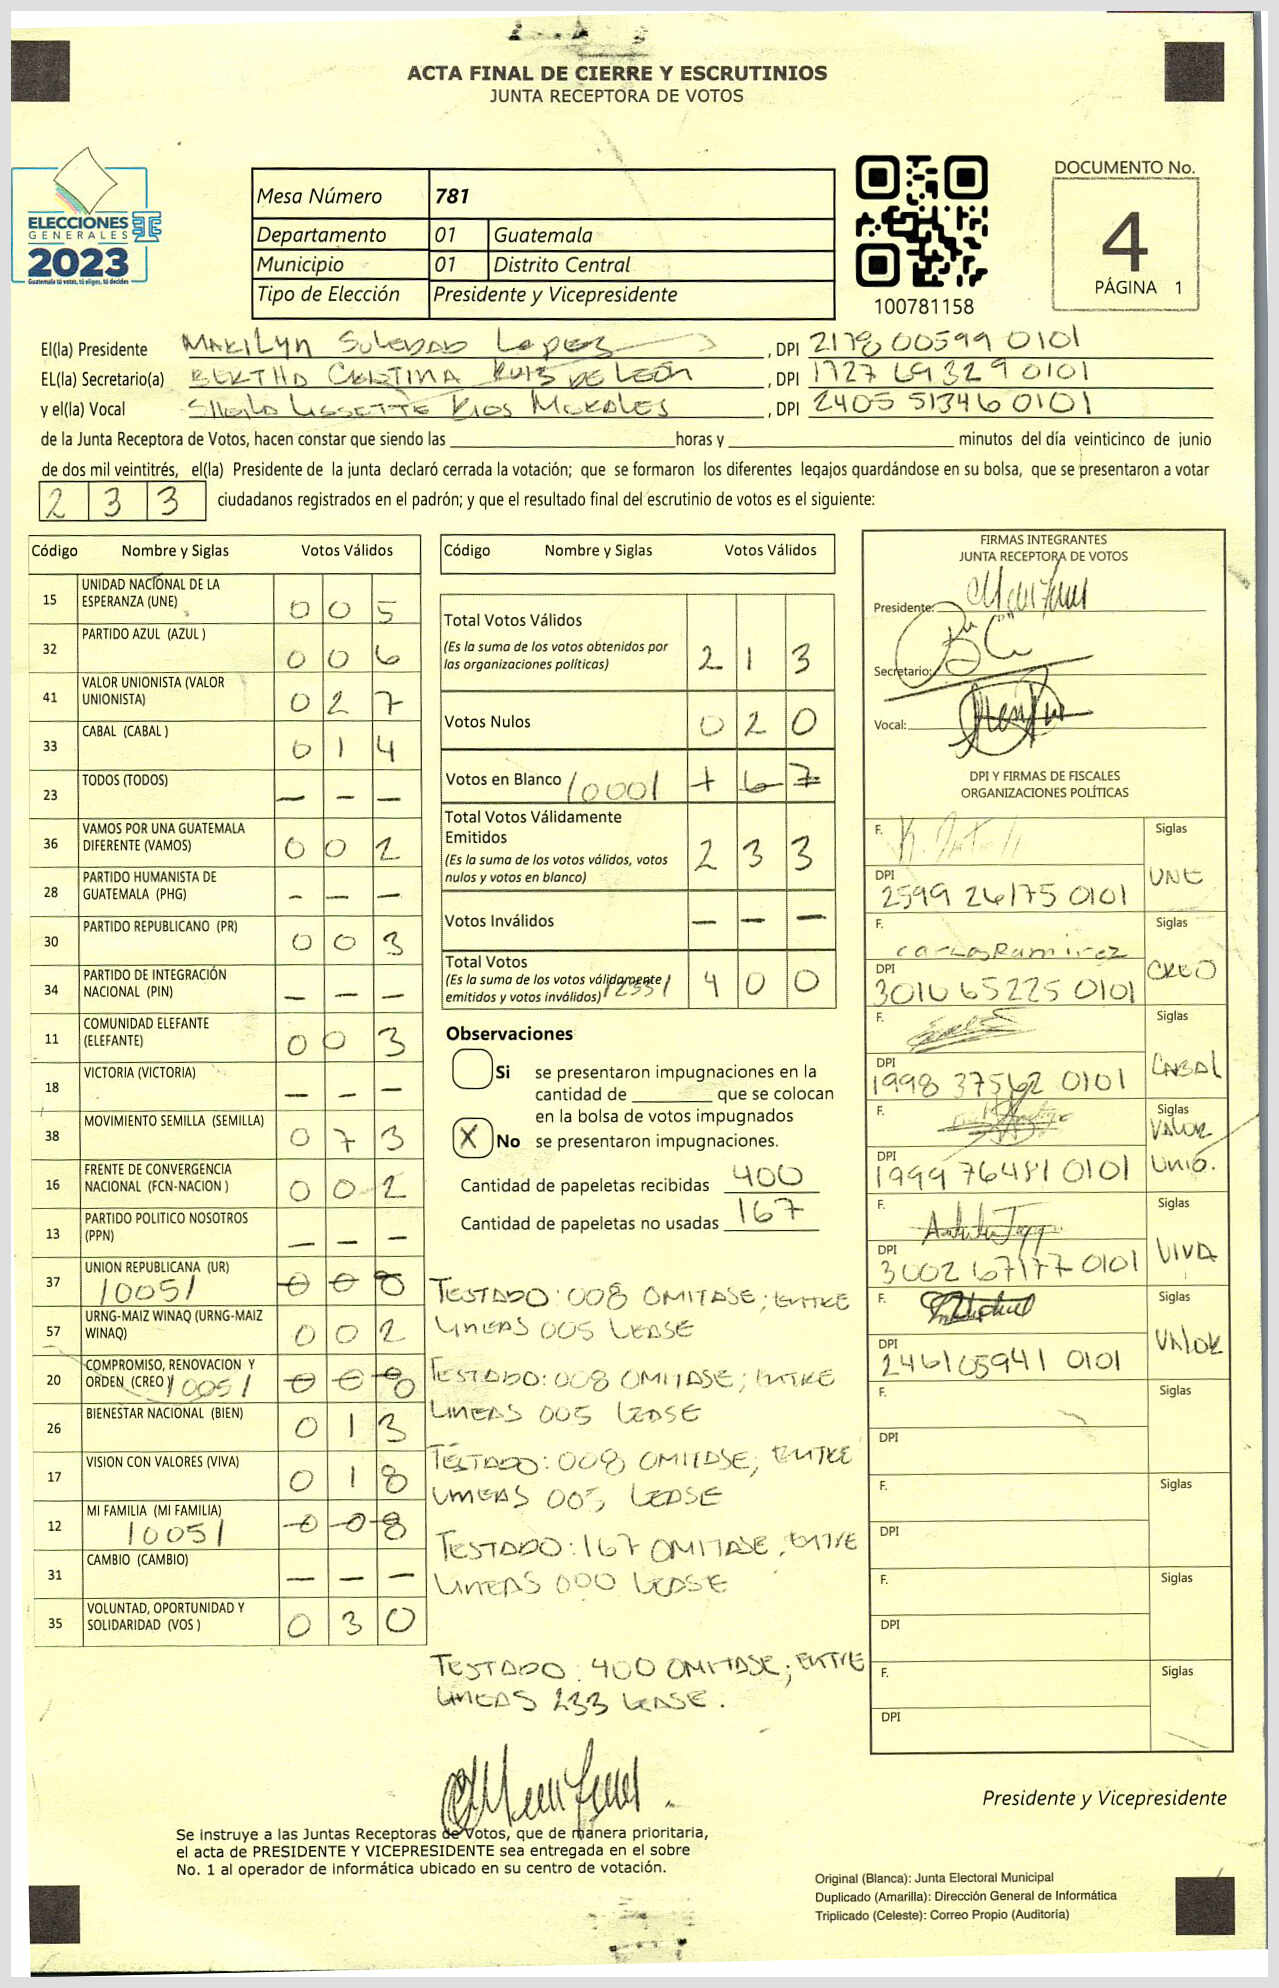 ACTA FINAL DE CIERRE Y ESCRUTINIOS
JUNTA RECEPTORA DE VOTOS
ELECCIONES
GENERALES
2023
Guatemala tú votas, tú eliges, tú decides
Mesa Número 781
Departamento 01 Guatemala
Municipio 01 Distrito Central
Tipo de Elección Presidente y Vicepresidente
100781158
DOCUMENTO No.
4
PÁGINA 1
El(la) Presidente MARILYN SOLEDAD LOPEZ, DPI 2178 00599 0101
EL(la) Secretario(a) BERTHA CRISTINA RUIS DE LEÓN, DPI 1727 69329 0101
y el(la) Vocal LISSETTE RIOS MORALES, DPI 2405 51346 0101
de la Junta Receptora de Votos, hacen constar que siendo las ____ horas y ____ minutos del día veinticinco de junio
de dos mil veintitrés, el(la) Presidente de la junta declaró cerrada la votación; que se formaron los diferentes legajos guardándose en su bolsa, que se presentaron a votar
233 ciudadanos registrados en el padrón; y que el resultado final del escrutinio de votos es el siguiente:
Código Nombre y Siglas Votos Válidos
15 UNIDAD NACIONAL DE LA ESPERANZA (UNE) 005
32 PARTIDO AZUL (AZUL ) 006
41 VALOR UNIONISTA (VALOR UNIONISTA) 027
33 CABAL (CABAL ) 014
23 TODOS (TODOS) — — —
36 VAMOS POR UNA GUATEMALA DIFERENTE (VAMOS) 002
28 PARTIDO HUMANISTA DE GUATEMALA (PHG) — — —
30 PARTIDO REPUBLICANO (PR) 003
34 PARTIDO DE INTEGRACIÓN NACIONAL (PIN) — — —
11 COMUNIDAD ELEFANTE (ELEFANTE) 003
18 VICTORIA (VICTORIA) — — —
38 MOVIMIENTO SEMILLA (SEMILLA) 073
16 FRENTE DE CONVERGENCIA NACIONAL (FCN-NACION ) 002
13 PARTIDO POLITICO NOSOTROS (PPN) — — —
37 UNION REPUBLICANA (UR) /005/ 008
57 URNG-MAIZ WINAQ (URNG-MAIZ WINAQ) 002
20 COMPROMISO, RENOVACION Y ORDEN (CREO ) /005/ 008
26 BIENESTAR NACIONAL (BIEN) 013
17 VISION CON VALORES (VIVA) 018
12 MI FAMILIA (MI FAMILIA) /005/ 008
31 CAMBIO (CAMBIO) — — —
35 VOLUNTAD, OPORTUNIDAD Y SOLIDARIDAD (VOS ) 030
Código Nombre y Siglas Votos Válidos
Total Votos Válidos
(Es la suma de los votos obtenidos por las organizaciones políticas) 213
Votos Nulos 020
Votos en Blanco /000/ 167
Total Votos Válidamente Emitidos
(Es la suma de los votos válidos, votos nulos y votos en blanco) 233
Votos Inválidos — — —
Total Votos
(Es la suma de los votos válidamente emitidos y votos inválidos) /233/ 400
Observaciones
Si se presentaron impugnaciones en la
cantidad de ____ que se colocan
en la bolsa de votos impugnados
X No se presentaron impugnaciones.
Cantidad de papeletas recibidas 400
Cantidad de papeletas no usadas 167
TESTADO: 008 OMITASE; ENTRE
LINEAS 005 LEASE
TESTADO: 008 OMITASE; ENTRE
LINEAS 005 LEASE
TESTADO: 008 OMITASE; ENTRE
LINEAS 005 LEASE
TESTADO: 167 OMITASE, ENTRE
LINEAS 000 LEASE
TESTADO: 400 OMITASE; ENTRE
LINEAS 233 LEASE.
FIRMAS INTEGRANTES
JUNTA RECEPTORA DE VOTOS
Presidente:
Secretario:
Vocal:
DPI Y FIRMAS DE FISCALES
ORGANIZACIONES POLÍTICAS
F. Siglas
DPI 2599 26175 0101 UNE
F. Carlos Ramirez Siglas
DPI 3010 65225 0101 CREO
F. Siglas
DPI 1998 37562 0101 CABAL
F. Siglas VALOR
DPI 1999 76481 0101 UNIO.
F. Siglas
DPI 3002 67177 0101 VIVA
F. Siglas
DPI 2461 05941 0101 VALOR
F. Siglas
DPI
F. Siglas
DPI
F. Siglas
DPI
F. Siglas
DPI
Presidente y Vicepresidente
Se instruye a las Juntas Receptoras de Votos, que de manera prioritaria,
el acta de PRESIDENTE Y VICEPRESIDENTE sea entregada en el sobre
No. 1 al operador de informática ubicado en su centro de votación.
Original (Blanca): Junta Electoral Municipal
Duplicado (Amarilla): Dirección General de Informática
Triplicado (Celeste): Correo Propio (Auditoría)